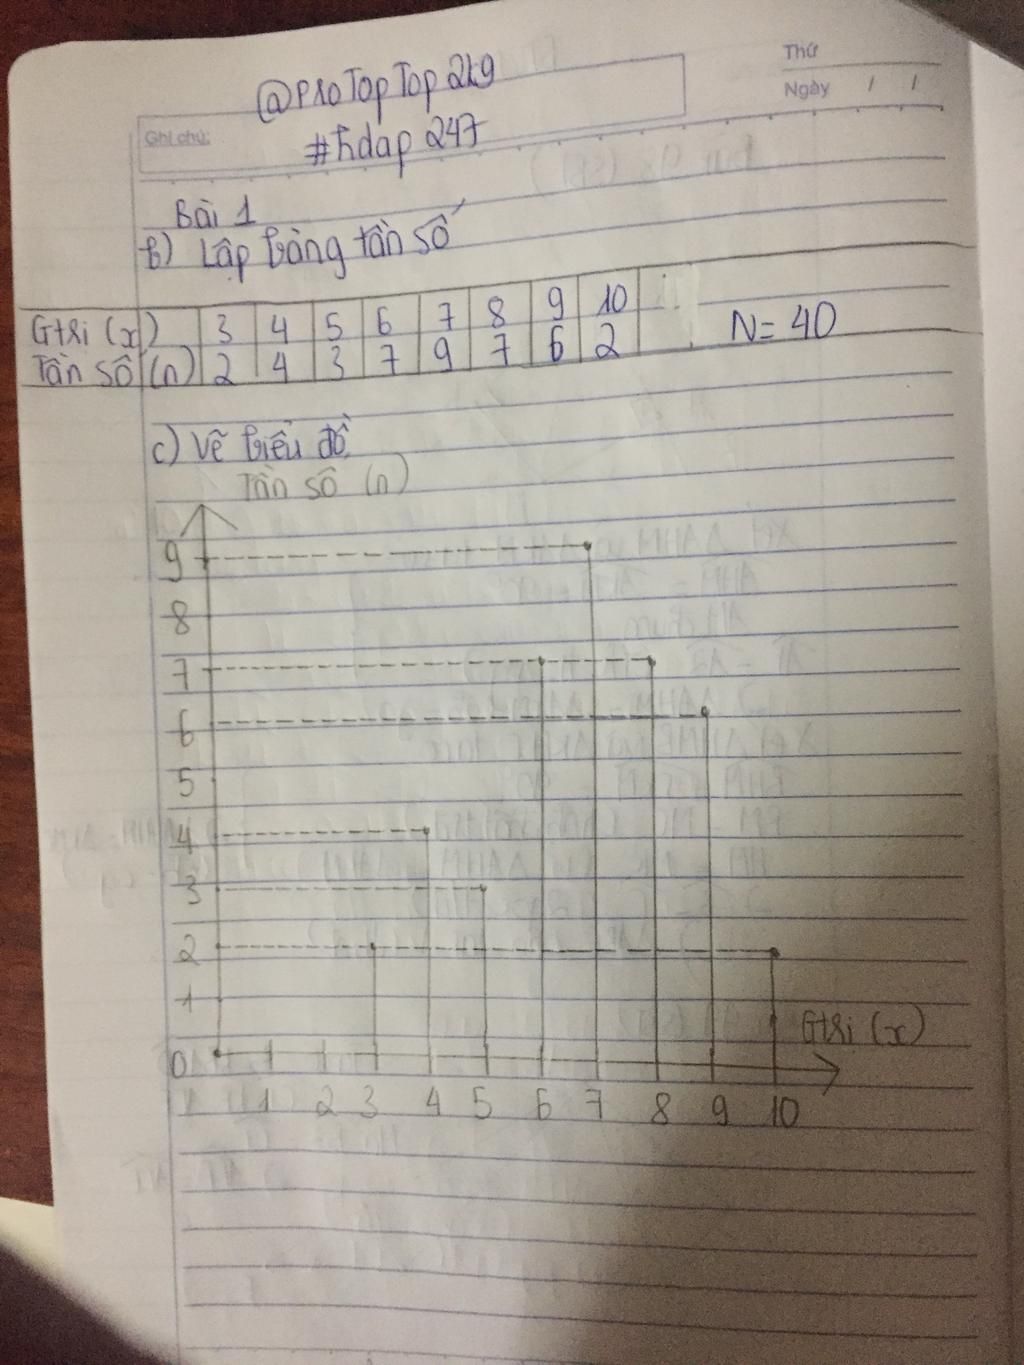 Thứ
Ngày / /
@proTopTop2k9
Ghi chú:
#hdap 247
Bài 1
b) Lập bảng tần số
Gtri (x) 3 4 5 6 7 8 9 10
Tần số (n) 2 4 3 7 9 7 6 2 N = 40
c) Vẽ biểu đồ
Tần số (n)
9
8
7
6
5
4
3
2
1
0
Gtri (x)
1 2 3 4 5 6 7 8 9 10